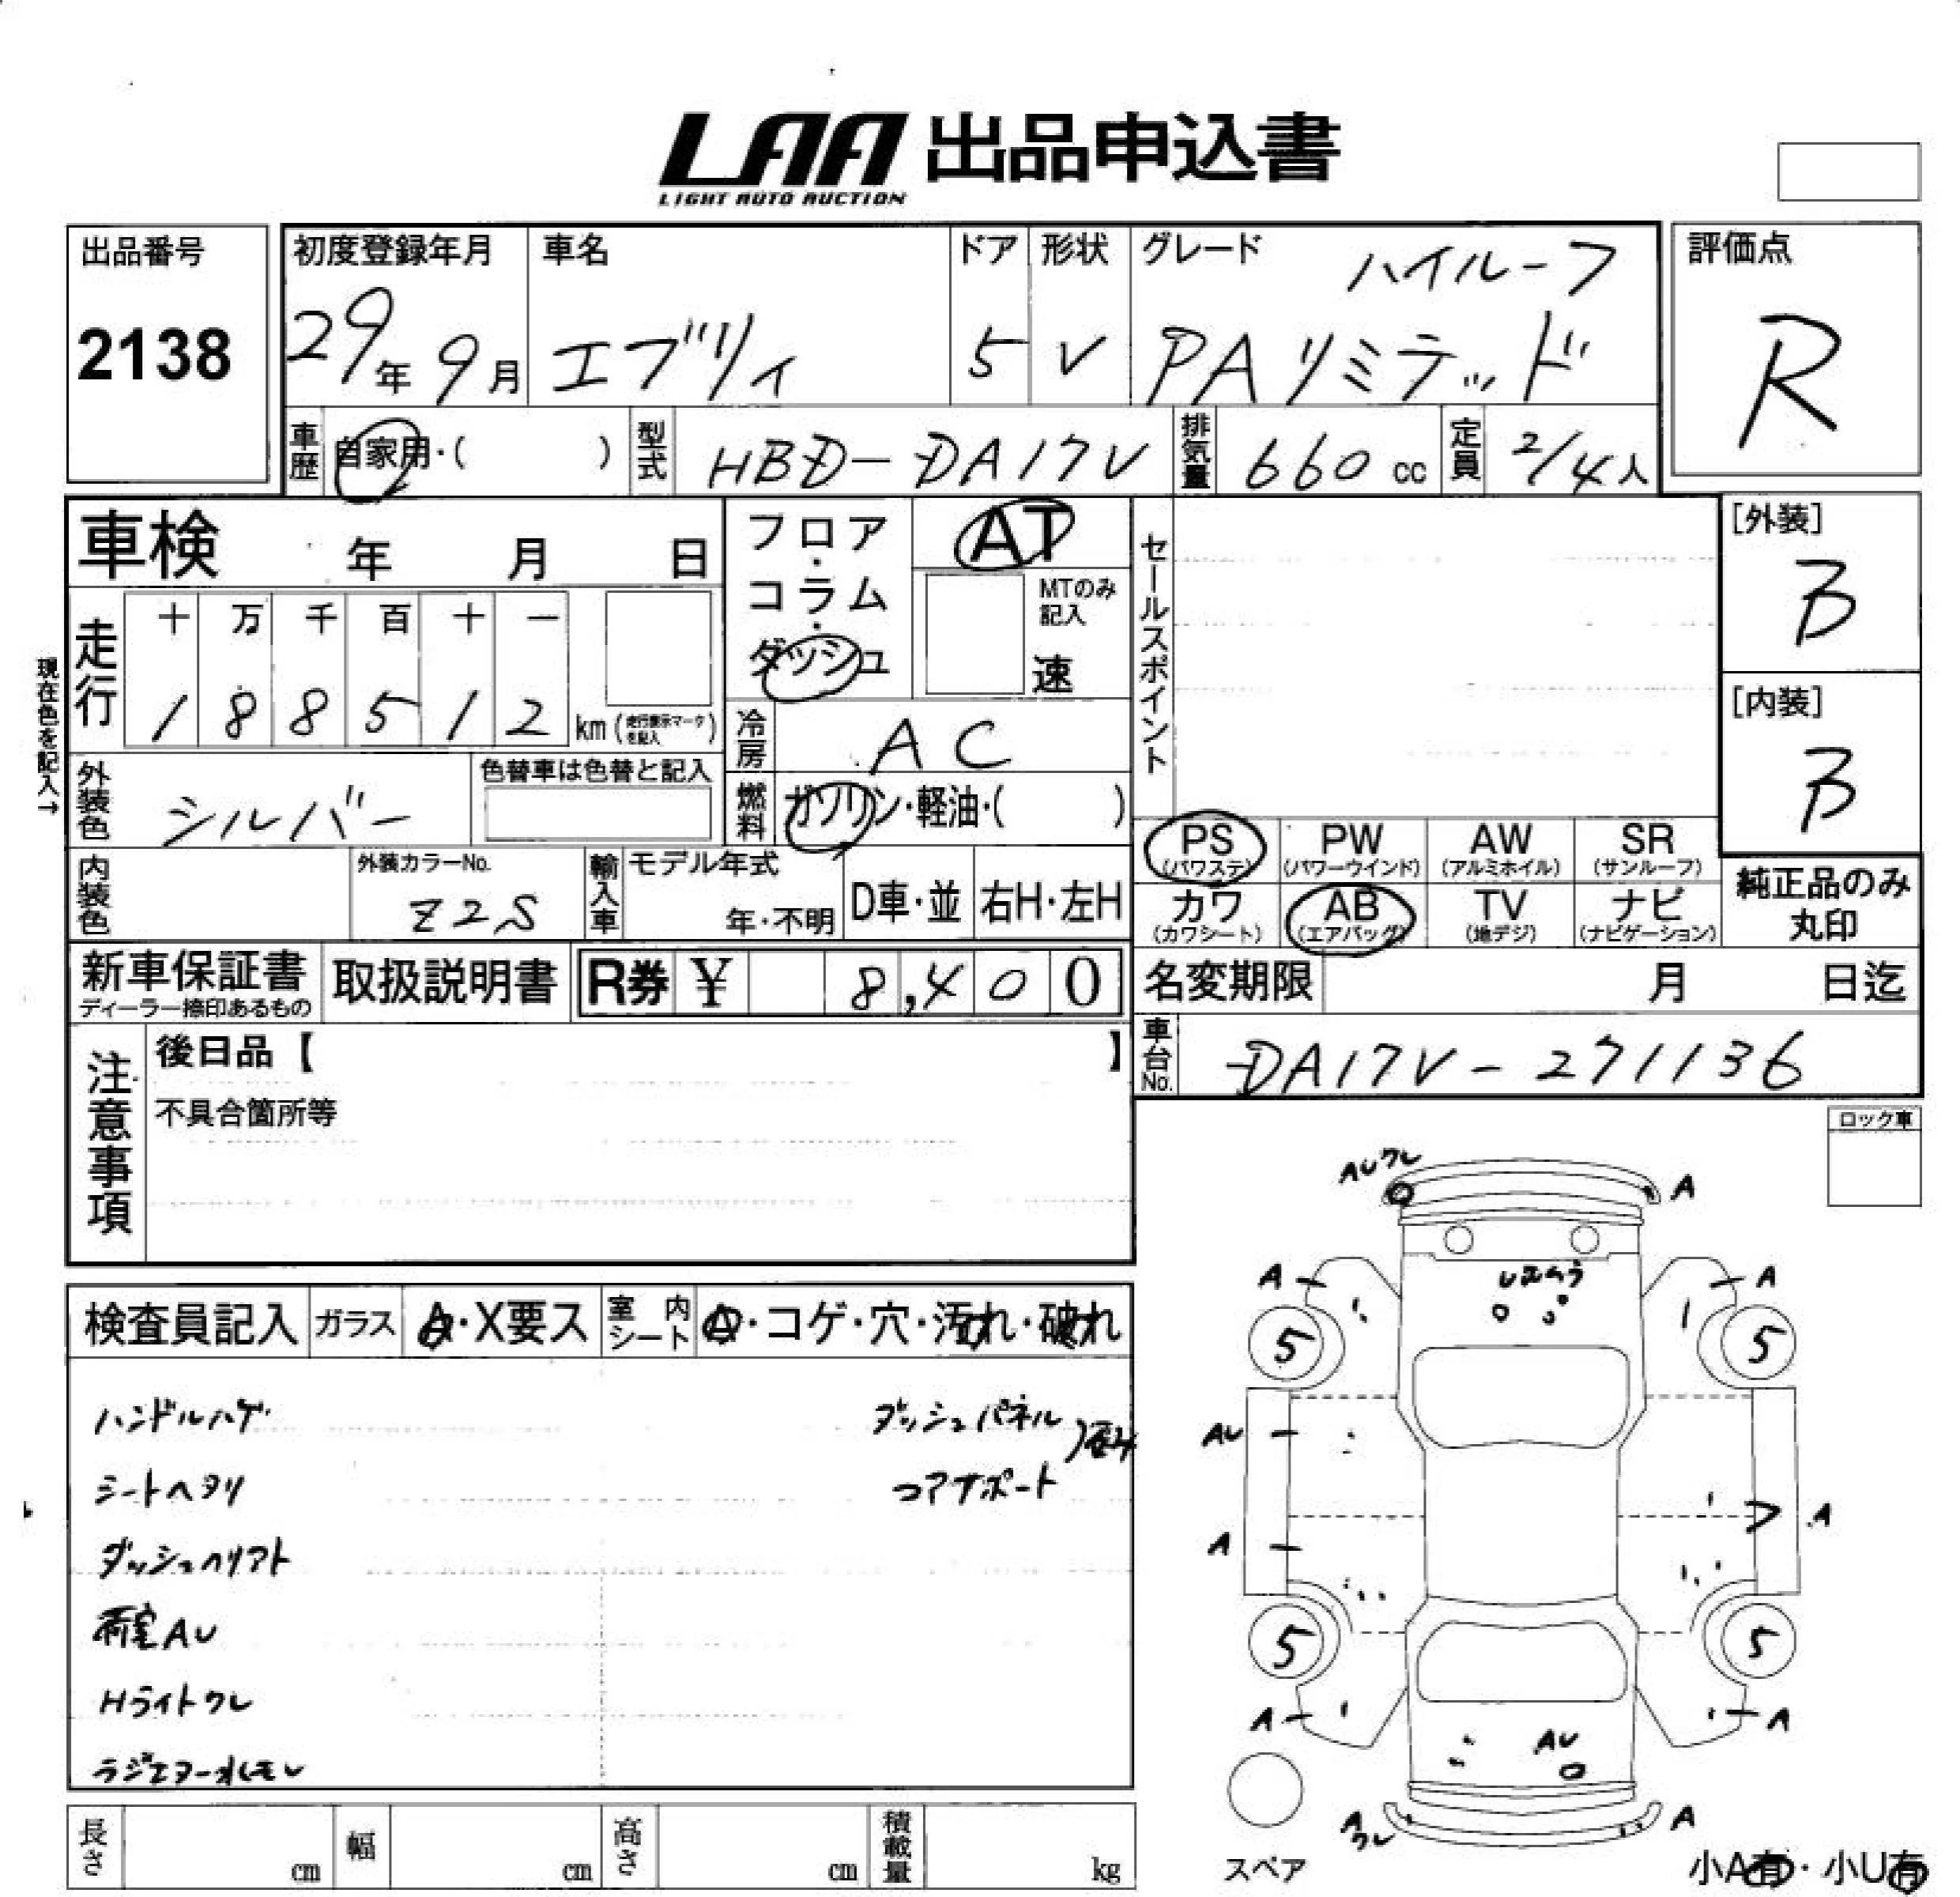 LAA 出品申込書
LIGHT AUTO AUCTION
出品番号
2138
初度登録年月
29年9月
車名
エブリィ
ドア
5
形状
V
グレード
ハイルーフ
PAリミテッド
評価点
R
車歴
自家用・( )
型式
HBD-DA17V
排気量
660 cc
定員
2/4人
車検 年 月 日
フロア・コラム・ダッシュ
AT
MTのみ記入
速
セールスポイント
[外装]
B
[内装]
B
現在色を記入→
走行
十 万 千 百 十 一
1 8 8 5 1 2 km (走行表示マークを記入)
冷房
AC
外装色
シルバー
色替車は色替と記入
燃料
ガソリン・軽油・( )
PS (パワステ)
PW (パワーウインド)
AW (アルミホイル)
SR (サンルーフ)
カワ (カワシート)
AB (エアバッグ)
TV (地デジ)
ナビ (ナビゲーション)
純正品のみ丸印
内装色
外装カラーNo.
Z2S
輸入車
モデル年式
年・不明
D車・並
右H・左H
新車保証書
ディーラー捺印あるもの
取扱説明書
R券 ¥ 8,400
名変期限 月 日迄
車台No.
DA17V-271136
注意事項
後日品【 】
不具合箇所等
ロック車
検査員記入
ガラス
A・X要ス
室内シート
A・コゲ・穴・汚れ・破れ
ハンドルハゲ
シートヘタリ
ダッシュヘリアト
荷室AU
Hライトワレ
ラジエター水モレ
ダッシュパネル
コアサポート
AUワレ
A
A
A
5
5
AU
A
A
5
5
A
A
AU
A
ワレ
A
スペア
小A有・小U有
長さ cm
幅 cm
高さ cm
積載量 kg